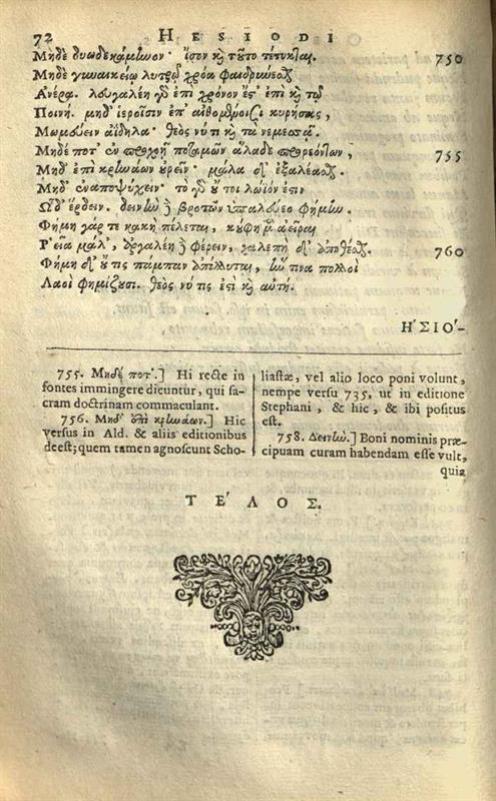 72 HESIODI
Μηδὲ δυωδεκάμηνον· ἶσον καὶ τοῦτο τέτυκται. 750
Μηδὲ γυναικείῳ λουτρῷ χρόα φαιδρύνεσθαι
Ἀνέρα. λευγαλέη γὰρ ἐπὶ χρόνον ἔστ' ἐπὶ καὶ τῷ
Ποινή. μηδ' ἱεροῖσιν ἐπ' αἰθομένοισι κυρήσας,
Μωμεύειν ἀΐδηλα· θεός νύ τι καὶ τὰ νεμεσσᾷ.
Μηδέ ποτ' ἐν προχοῇ ποταμῶν ἅλαδε προρεόντων, 755
Μηδ' ἐπὶ κρηνάων οὐρεῖν· μάλα δ' ἐξαλέασθαι.
Μηδ' ἐναποψύχειν· τὸ γὰρ οὔ τοι λώϊόν ἐστιν
Ὧδ' ἔρδειν. δεινὴν δὲ βροτῶν ὑπαλεύεο φήμην.
Φήμη γάρ τε κακὴ πέλεται, κούφη μὲν ἀεῖραι
Ῥεῖα μάλ', ἀργαλέη δὲ φέρειν, χαλεπὴ δ' ἀποθέσθαι. 760
Φήμη δ' οὔτις πάμπαν ἀπόλλυται, ἥν τινα πολλοὶ
Λαοὶ φημίζουσι. θεός νύ τις ἐστὶ καὶ αὐτή.
ἩΣΙΌ-
755. Μηδέ ποτ'.] Hi recte in
fontes immingere dicuntur, qui sa-
cram doctrinam commaculant.
756. Μηδ' ἐπὶ κρηνάων.] Hic
versus in Ald. & aliis editionibus
deest; quem tamen agnoscunt Scho-
liastæ, vel alio loco poni volunt,
nempe versu 735, ut in editione
Stephani, & hic, & ibi positus
est.
758. Δεινὴν.] Boni nominis præ-
cipuam curam habendam esse vult,
quia
ΤΈΛΟΣ.